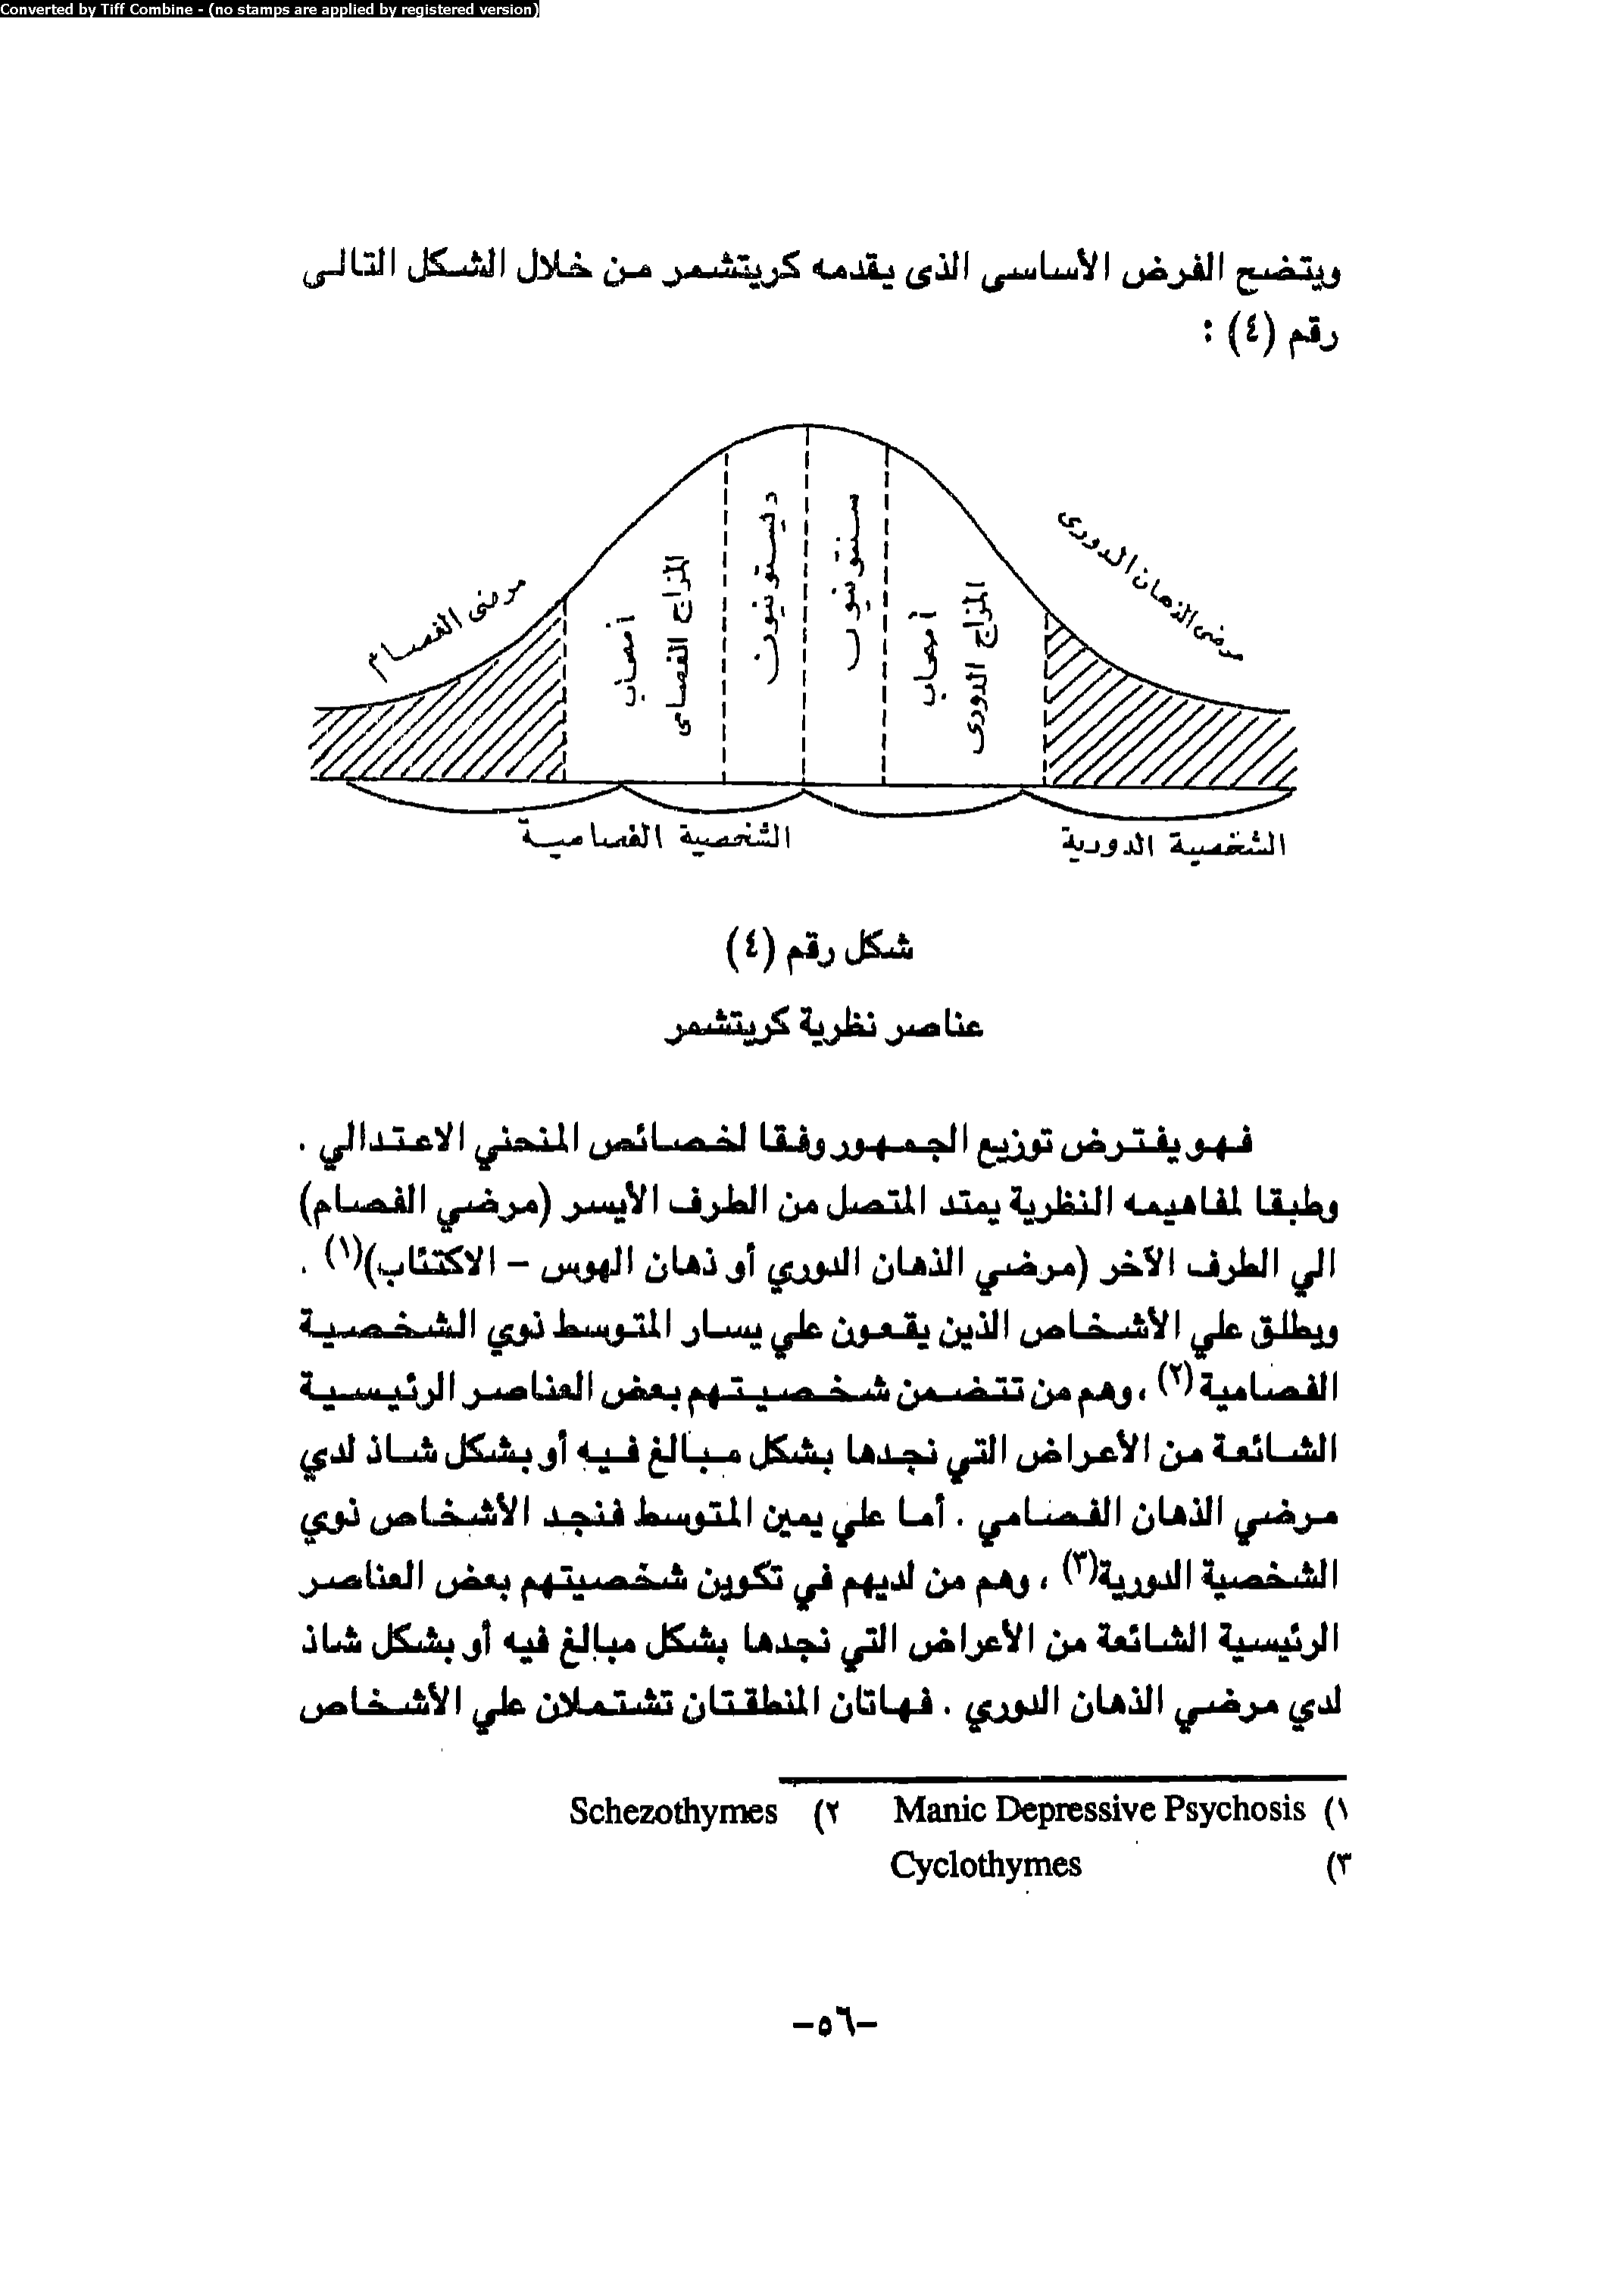 Converted by Tiff Combine - (no stamps are applied by registered version)
ويتضح الفرض الأساسى الذى يقدمه كريتشمر من خلال الشكل التالى
رقم (٤) :
مرضى الذهان الدورى
مرضى الفصام
أصحاب
المزاج الفصامى
ديستونيون
سنتونيون
أصحاب
المزاج الدورى
الشخصية الدورية
الشخصية الفصامية
شكل رقم (٤)
عناصر نظرية كريتشمر
فهو يفترض توزيع الجمهور وفقا لخصائص المنحني الاعتدالي .
وطبقا لمفاهيمه النظرية يمتد المتصل من الطرف الأيسر (مرضي الفصام)
الي الطرف الآخر (مرضي الذهان الدوري أو ذهان الهوس – الاكتئاب)(١) .
ويطلق علي الأشخاص الذين يقعون علي يسار المتوسط ذوي الشخصية
الفصامية(٢) ، وهم من تتضمن شخصيتهم بعض العناصر الرئيسية
الشائعة من الأعراض التي نجدها بشكل مبالغ فيه أو بشكل شاذ لدي
مرضي الذهان الفصامي . أما علي يمين المتوسط فنجد الأشخاص ذوي
الشخصية الدورية(٣) ، وهم من لديهم في تكوين شخصيتهم بعض العناصر
الرئيسية الشائعة من الأعراض التي نجدها بشكل مبالغ فيه أو بشكل شاذ
لدي مرضي الذهان الدوري . فهاتان المنطقتان تشتملان علي الأشخاص
١) Manic Depressive Psychosis ٢) Schezothymes
٣) Cyclothymes
–٥٦–